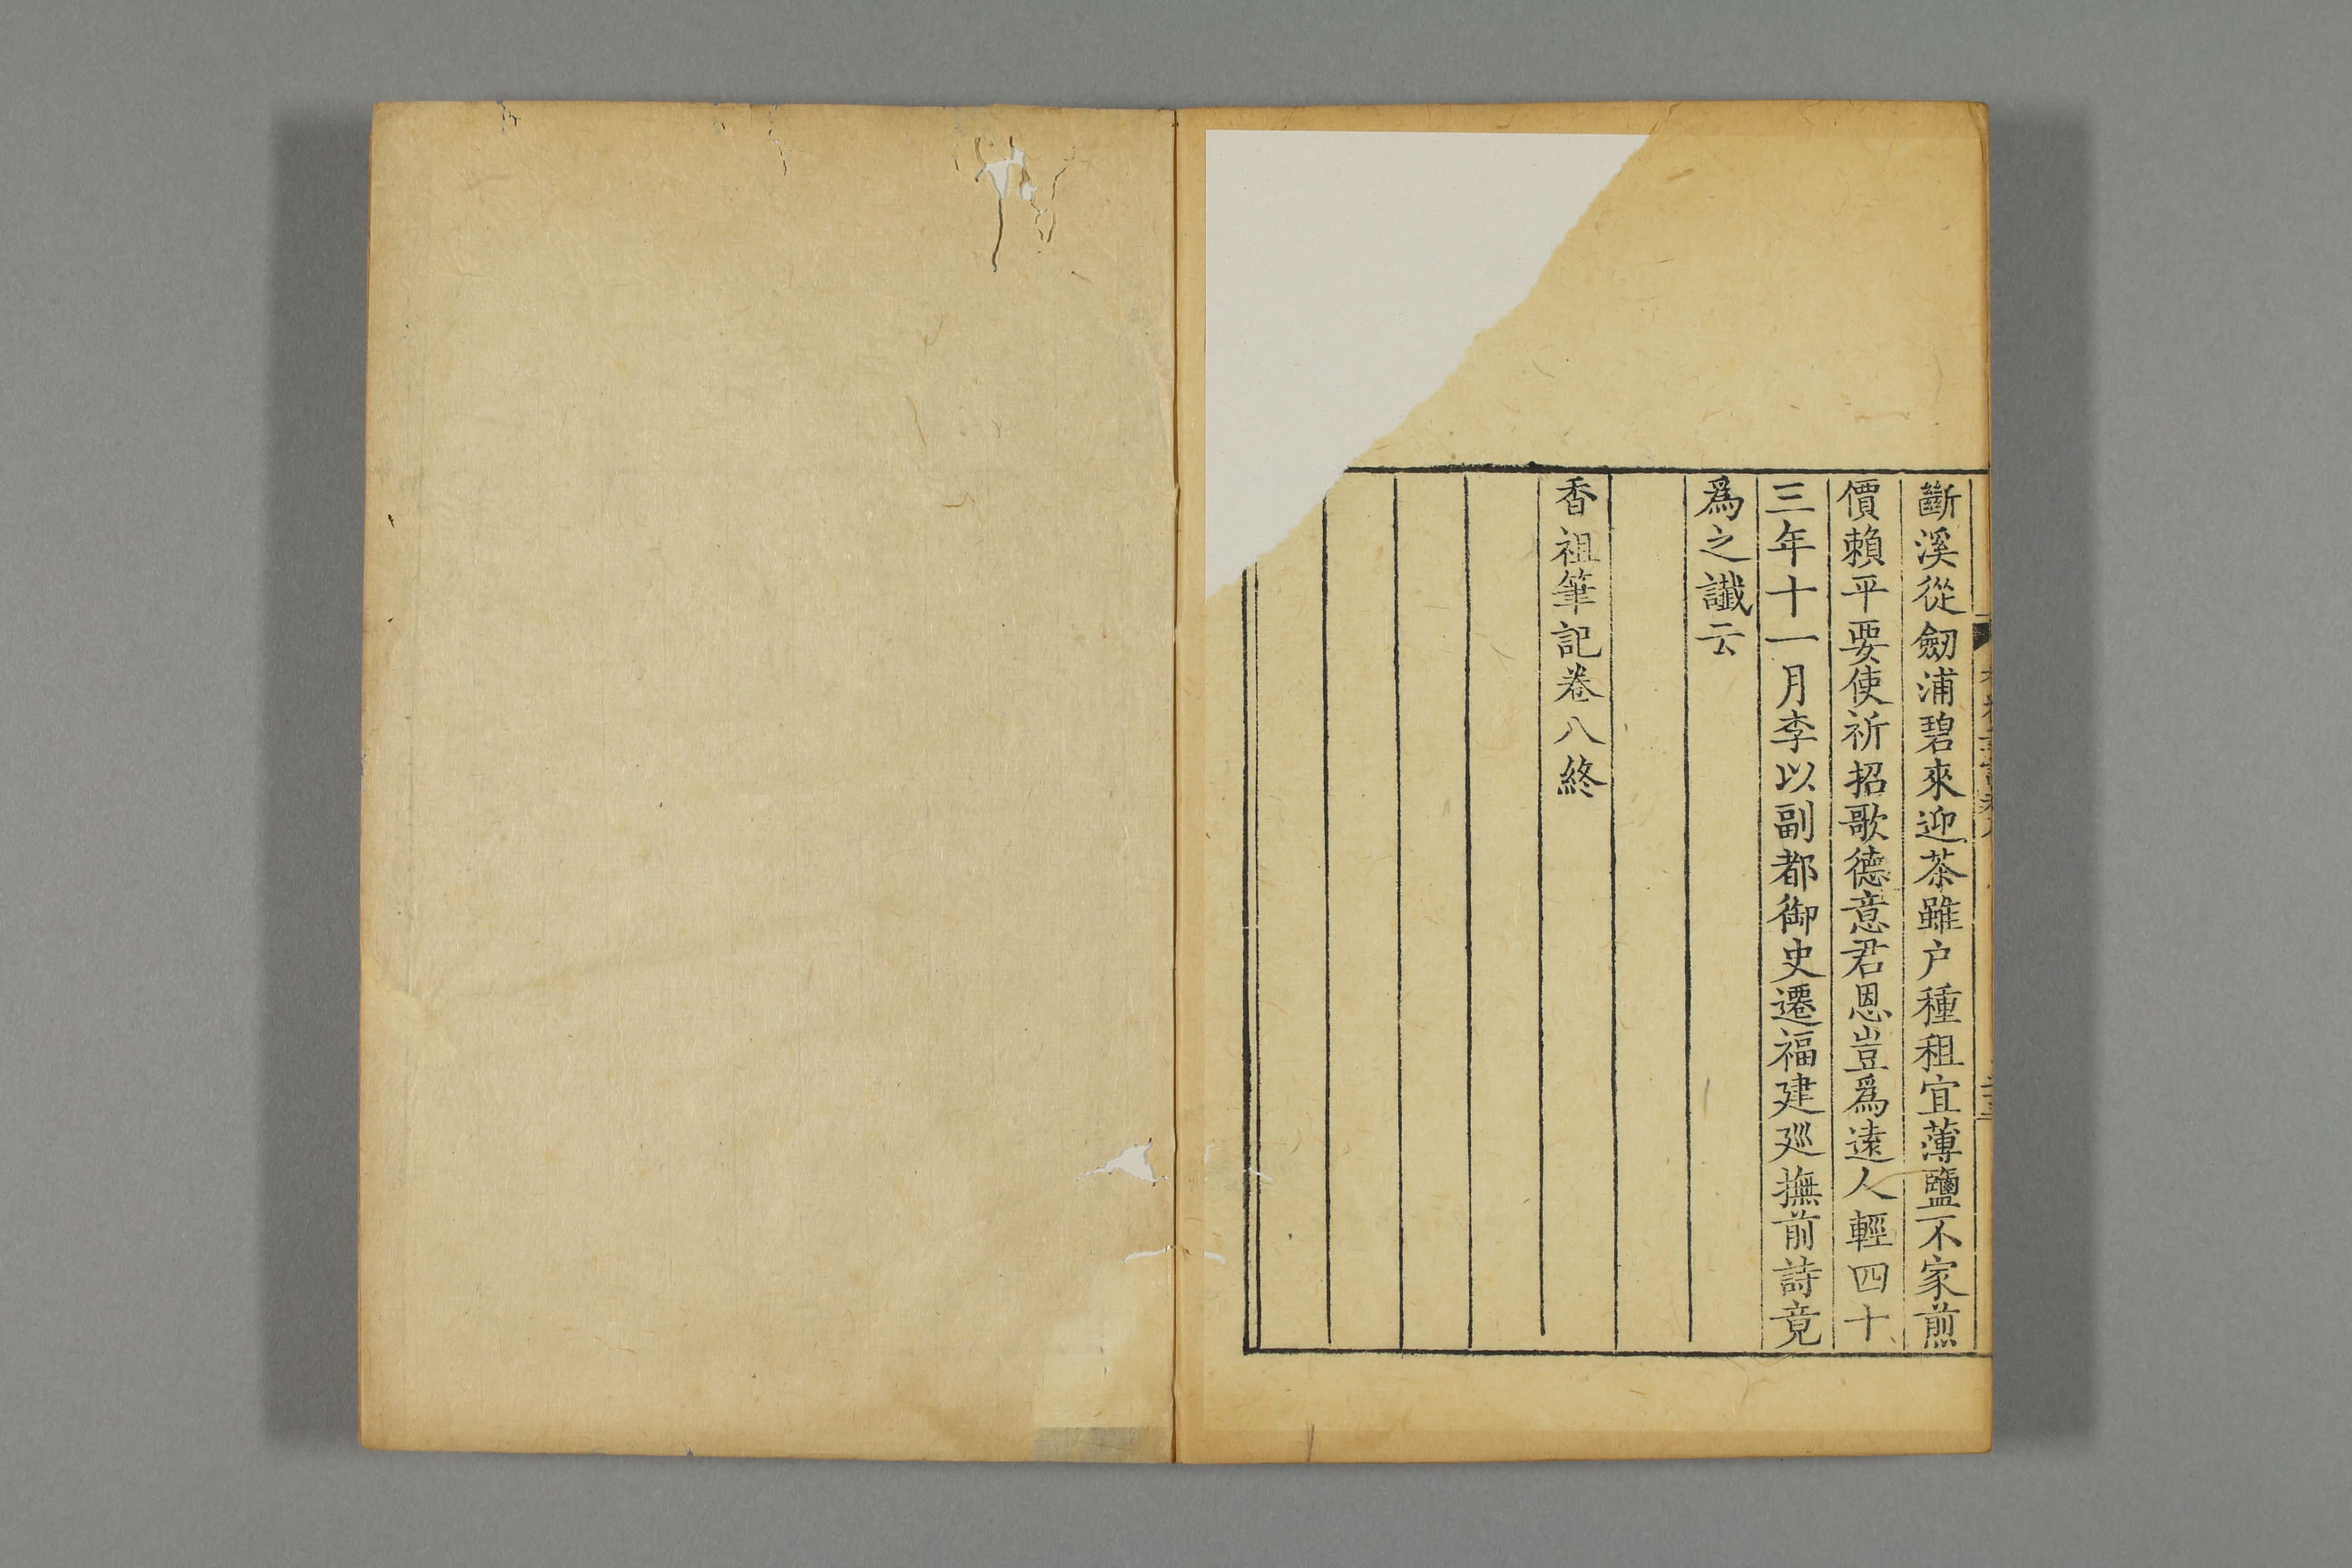 斷溪從劒浦碧來迎茶雖户種租宜薄鹽不家煎
價賴平要使祈招歌德意君恩豈爲遠人輕四十
三年十一月李以副都御史遷福建廵撫前詩竟
爲之讖云
香祖筆記卷八終